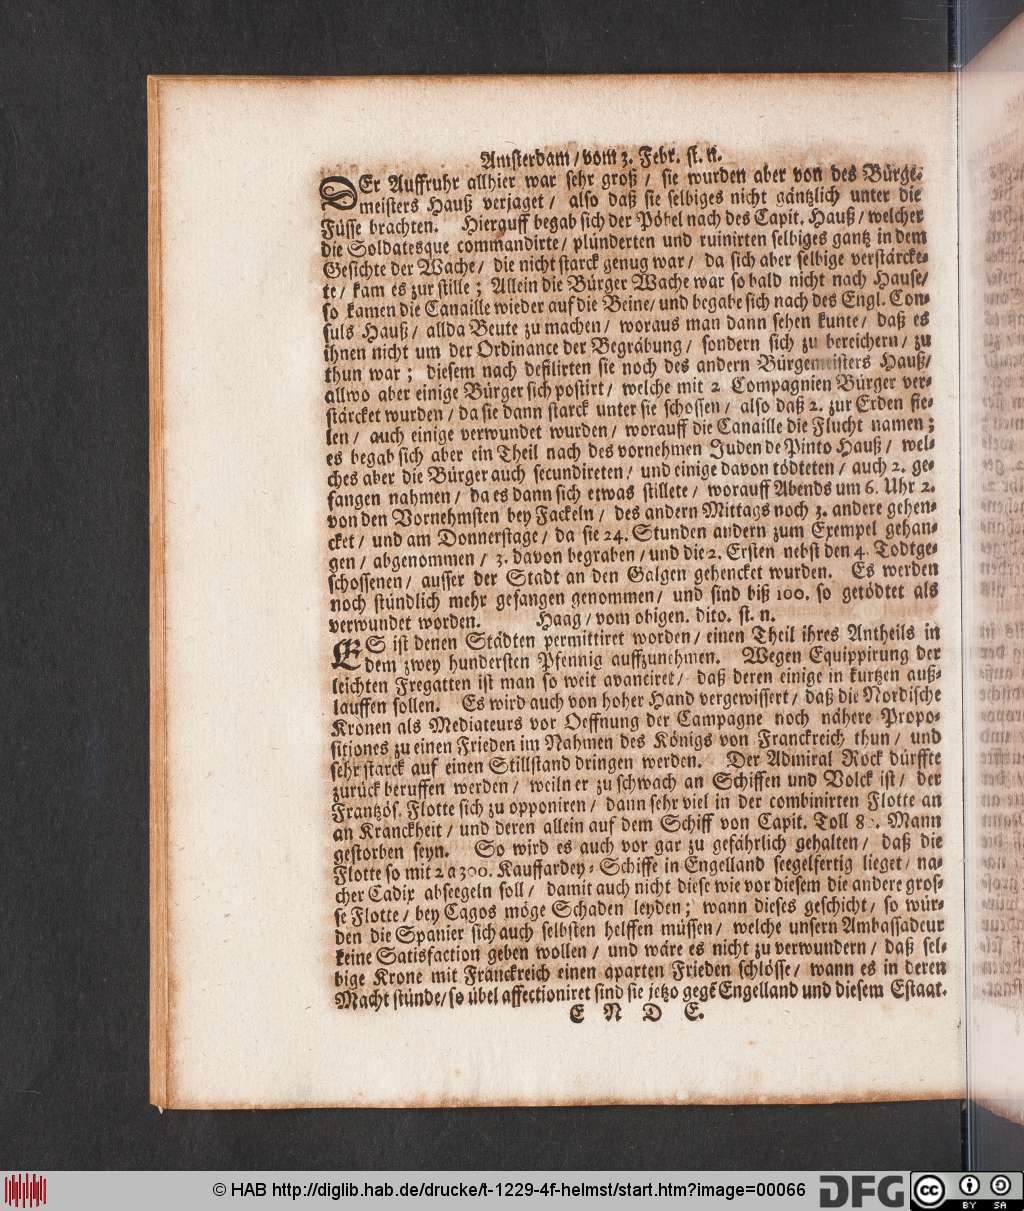 Amsterdam / vom 3. Febr. st. n.
DEr Auffruhr allhier war sehr groß / sie wurden aber von des Bürge-
meisters Hauß verjaget / also daß sie selbiges nicht gäntzlich unter die
Füsse brachten. Hierauff begab sich der Pöbel nach des Capit. Hauß / welcher
die Soldatesque commandirte / plünderten und ruinirten selbiges gantz in dem
Gesichte der Wache / die nicht starck genug war / da sich aber selbige verstärcke-
te / kam es zur stille ; Allein die Bürger Wache war so bald nicht nach Hause /
so kamen die Canaille wieder auf die Beine / und begabe sich nach des Engl. Con-
suls Hauß / allda Beute zu machen / woraus man dann sehen kunte / daß es
ihnen nicht um der Ordinance der Begräbung / sondern sich zu bereichern / zu
thun war ; diesem nach defilirten sie noch des andern Bürgemeisters Hauß /
allwo aber einige Bürger sich postirt / welche mit 2 Compagnien Bürger ver-
stärcket wurden / da sie dann starck unter sie schossen / also daß 2. zur Erden fie-
len / auch einige verwundet wurden / worauff die Canaille die Flucht namen ;
es begab sich aber ein Theil nach des vornehmen Juden de Pinto Hauß / wel-
ches aber die Bürger auch secundireten / und einige davon tödteten / auch 2. ge-
fangen nahmen / da es dann sich etwas stillete / worauff Abends um 6. Uhr 2.
von den Vornehmsten bey Fackeln / des andern Mittags noch 3. andere gehen-
cket / und am Donnerstage / da sie 24. Stunden andern zum Exempel gehan-
gen / abgenommen / 3. davon begraben / und die 2. Ersten nebst den 4. Todtge-
schossenen / ausser der Stadt an den Galgen gehencket wurden. Es werden
noch stündlich mehr gefangen genommen / und sind biß 100. so getödtet als
verwundet worden. Haag / vom obigen. dito. st. n.
ES ist denen Städten permittiret worden / einen Theil ihres Antheils in
dem zwey hundersten Pfennig auffzunehmen. Wegen Equippirung der
leichten Fregatten ist man so weit avanciret / daß deren einige in kurtzen auß-
lauffen sollen. Es wird auch von hoher Hand vergewissert / daß die Nordische
Kronen als Mediateurs vor Oeffnung der Campagne noch nähere Propo-
sitiones zu einen Frieden im Nahmen des Königs von Franckreich thun / und
sehr starck auf einen Stillstand dringen werden. Der Admiral Rock dürffte
zurück beruffen werden / weiln er zu schwach an Schiffen und Volck ist / der
Frantzös. Flotte sich zu opponiren / dann sehr viel in der combinirten Flotte an
an Kranckheit / und deren allein auf dem Schiff von Capit. Toll 80. Mann
gestorben seyn. So wird es auch vor gar zu gefährlich gehalten / daß die
Flotte so mit 2 a 300. Kauffardey-Schiffe in Engelland seegelfertig lieget / na-
cher Cadix abseegeln soll / damit auch nicht diese wie vor diesem die andere gros-
se Flotte / bey Cagos möge Schaden leyden ; wann dieses geschicht / so wür-
den die Spanier sich auch selbsten helffen müssen / welche unsern Ambassadeur
keine Satisfaction geben wollen / und wäre es nicht zu verwundern / daß sel-
bige Krone mit Franckreich einen aparten Frieden schlösse / wann es in deren
Macht stünde / so übel affectioniret sind sie jetzo gegē Engelland und diesem Estaat.
E N D E.
© HAB http://diglib.hab.de/drucke/t-1229-4f-helmst/start.htm?image=00066
DFG
cc BY SA